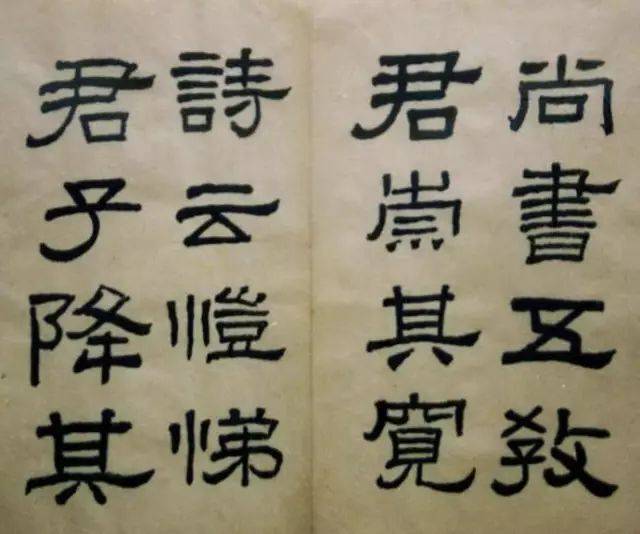 尚書五教
君崇其寬
詩云愷悌
君子降其